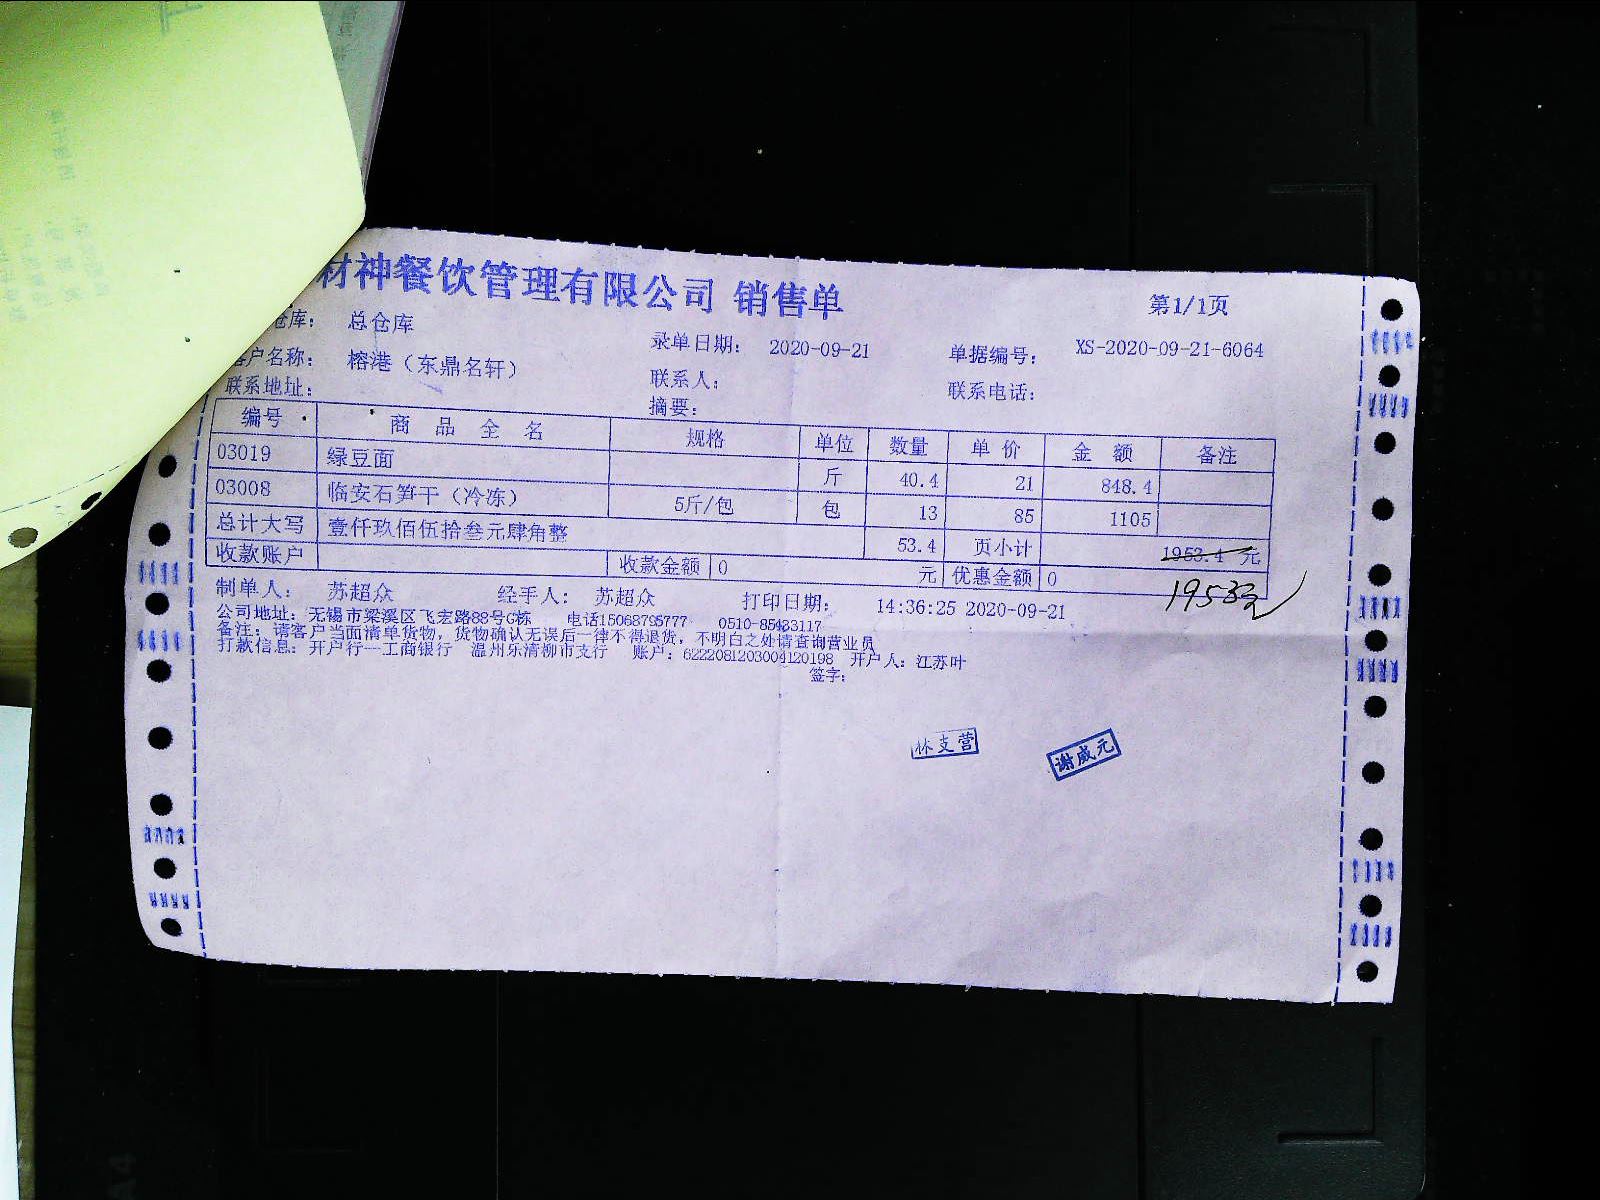 材神餐饮管理有限公司 销售单
第1/1页
仓库： 总仓库
录单日期： 2020-09-21
单据编号： XS-2020-09-21-6064
客户名称： 榕港（东鼎名轩）
联系人：
联系电话：
联系地址：
摘要：
编号 商品全名 规格 单位 数量 单价 金额 备注
03019 绿豆面 斤 40.4 21 848.4
03008 临安石笋干（冷冻） 5斤/包 包 13 85 1105
总计大写 壹仟玖佰伍拾叁元肆角整 53.4 页小计 1953.4 元
收款账户 收款金额 0 元 优惠金额 0
制单人： 苏超众 经手人： 苏超众 打印日期： 14:36:25 2020-09-21
公司地址：无锡市梁溪区飞宏路88号G栋 电话15068795777 0510-85433117
备注：请客户当面清单货物，货物确认无误后一律不得退货，不明白之处请查询营业员
打款信息：开户行--工商银行 温州乐清柳市支行 账户：6222081203004120198 开户人：江苏叶
签字：
林支营
谢威元